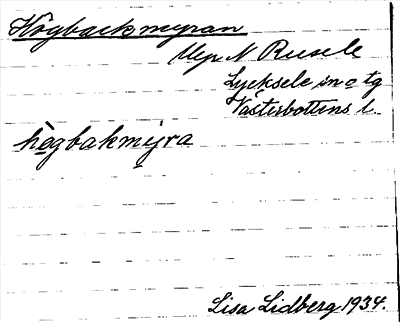 Högbackmyran
Myr N Rusele
Lycksele sn o tg
Västerbottens l.
hògbakmýra
Lisa Lidberg 1934.